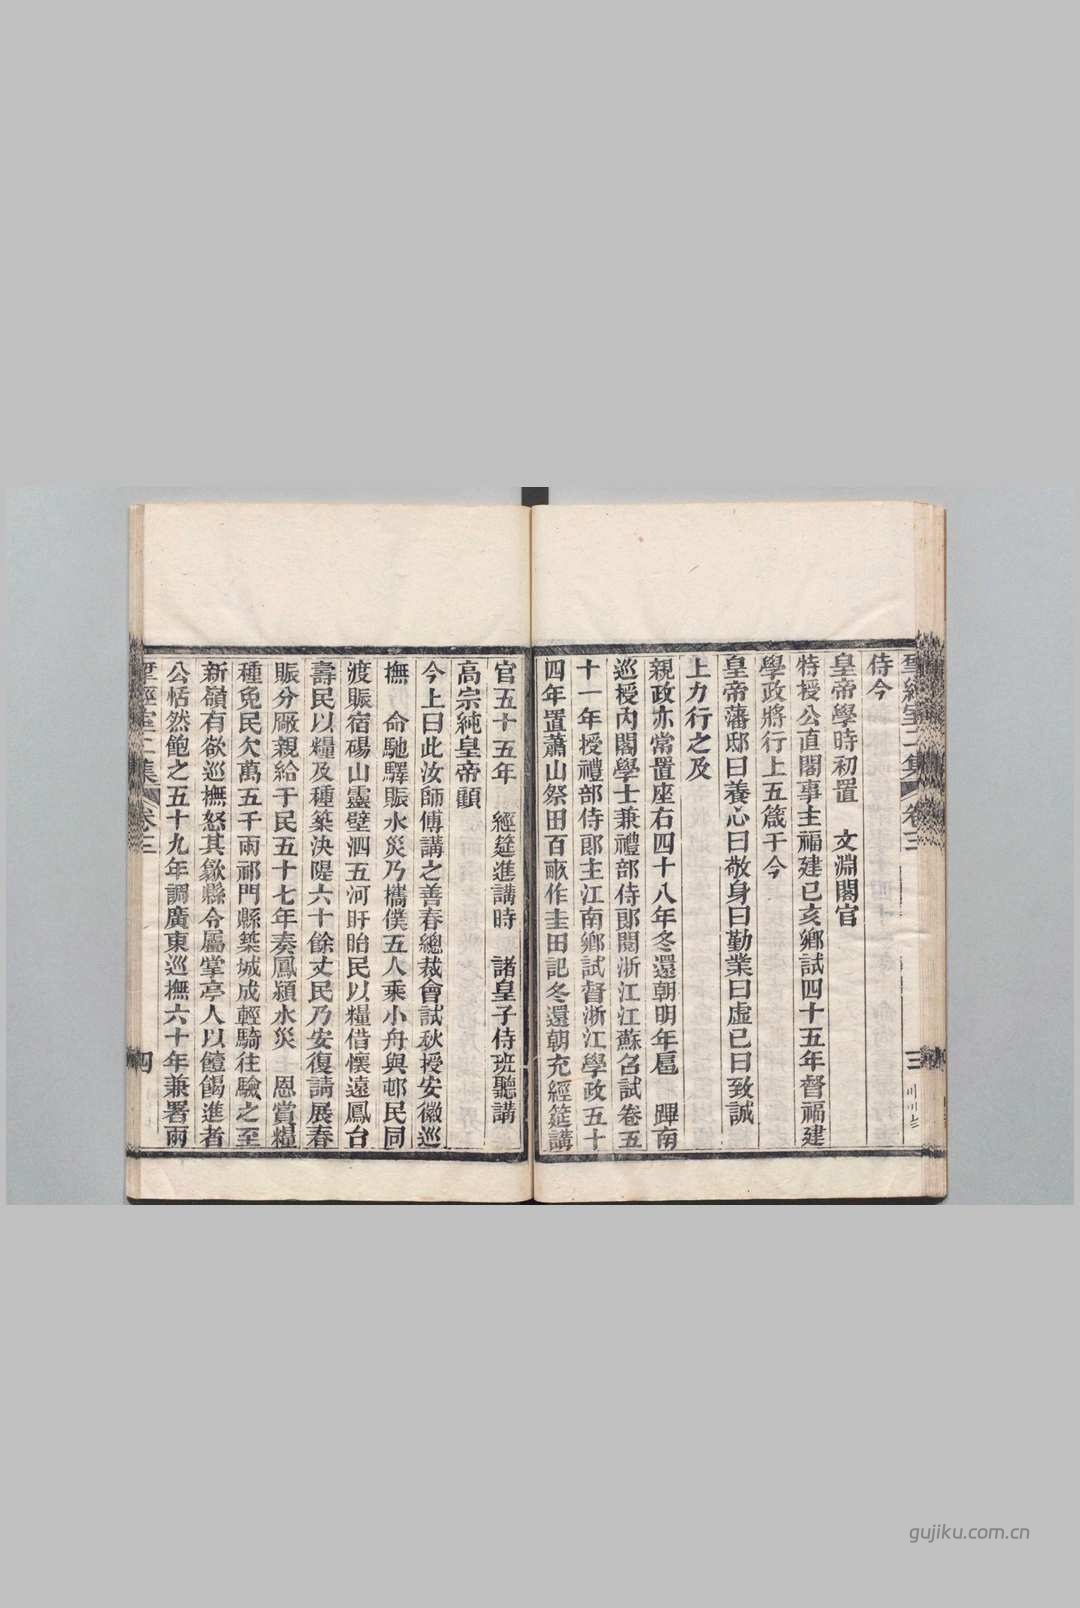 揅經室二集 卷三
三
侍今
皇帝學時初置 文淵閣官
特授公直閣事主福建己亥鄉試四十五年督福建
學政將行上五箴于今
皇帝藩邸曰養心曰敬身曰勤業曰虛己曰致誠
上力行之及
親政亦常置座右四十八年冬還朝明年扈 蹕南
巡授內閣學士兼禮部侍郎閱浙江江蘇召試卷五
十一年授禮部侍郎主江南鄉試督浙江學政五十
四年置蕭山祭田百畝作圭田記冬還朝充經筵講
官五十五年 經筵進講時 諸皇子侍班聽講
高宗純皇帝顧
今上曰此汝師傅講之善春總裁會試秋授安徽巡
撫 命馳驛賑水災乃攜僕五人乘小舟與邨民同
渡賑宿碭山靈壁泗五河盱眙民以糧借懷遠鳳台
壽民以糧及種築決隄六十餘丈民乃安復請展春
賑分廠親給于民五十七年奏鳳潁水災 恩賞糧
種免民欠萬五千兩祁門縣築城成輕騎往驗之至
新嶺有欲巡撫怒其歙縣令屬掌亭人以饐餲進者
公恬然飽之五十九年調廣東巡撫六十年兼署兩
揅經室二集 卷三
四
gujiku.com.cn